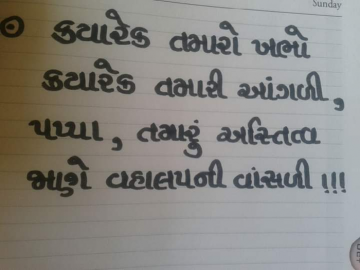 Sunday
ક્યારેક તમારો ખભો
ક્યારેક તમારી આંગળી,
પપ્પા, તમારું અસ્તિત્વ
જાણે વહાલપની વાંસળી !!!